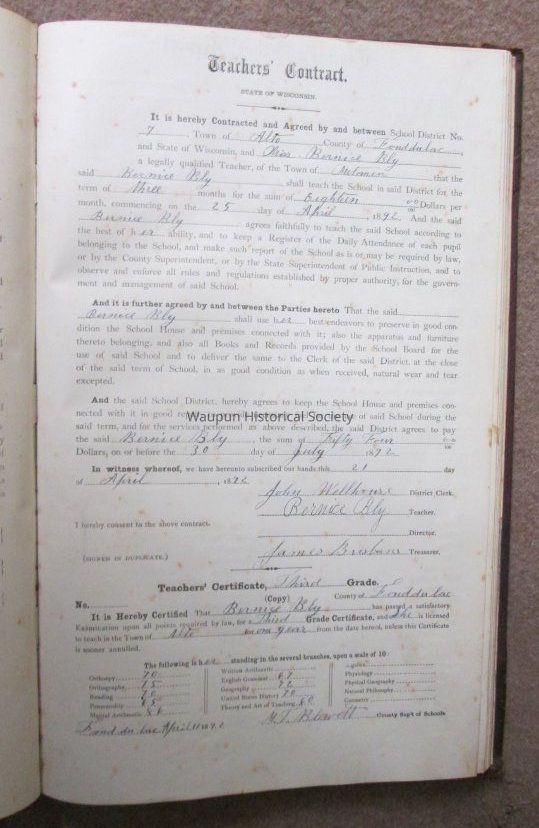 Teachers' Contract.
STATE OF WISCONSIN.
It is hereby Contracted and Agreed by and between School District No.
7, Town of Alto County of Fond du Lac,
and State of Wisconsin, and Miss Bernice Bly
a legally qualified Teacher, of the Town of that the
said Bernice Bly shall teach the School in said District for the
term of three months for the sum of Eighteen 00/100 Dollars per
month, commencing on the 25 day of April, 1892 And the said
Bernice Bly agrees faithfully to teach the said School according to
the best of her ability, and to keep a Register of the Daily Attendance of each pupil
belonging to the School, and make such report of the School as is or may be required by law,
or by the County Superintendent, or by the State Superintendent of Public Instruction, and to
observe and enforce all rules and regulations established by proper authority, for the govern-
ment and management of said School.
And it is further agreed by and between the Parties hereto That the said
Bernice Bly shall use her best endeavors to preserve in good con-
dition the School House and premises connected with it; also the apparatus and furniture
thereto belonging, and also all Books and Records provided by the School Board for the
use of said School and to deliver the same to the Clerk of the said District, at the close
of the said term of School, in as good condition as when received, natural wear and tear
excepted.
And the said School District, hereby agrees to keep the School House and premises con-
nected with it in good of said School during the
Waupun Historical Society
said term, and for the services performed as above described, the said District agrees to pay
the said Bernice Bly, the sum of Fifty Four
Dollars, on or before the 30 day of July 1892
In witness whereof, we have hereunto subscribed our hands this 21 day
of April, 1892
John Wellhouse District Clerk.
Bernice Bly Teacher.
I hereby consent to the above contract.
Director.
(SIGNED IN DUPLICATE.) James Treasurer.
Teachers' Certificate, Third Grade.
(Copy)
No. County of Fond du Lac
It is Hereby Certified That Bernice Bly has passed a satisfactory
Examination upon all points required by law, for a Third Grade Certificate, and She is licensed
to teach in the Town of Alto for one year from the date hereof, unless this Certificate
is sooner annulled.
The following is her standing in the several branches, upon a scale of 10:
Orthoepy 70 Written Arithmetic
Orthography 75 English Grammar 67 Physiology
Reading Geography 72 Physical Geography
Penmanship 85 United States History 70 Natural Philosophy
Mental Arithmetic Theory and Art of Teaching 60 Geometry
Fond du Lac April 1892 County Sup't of Schools